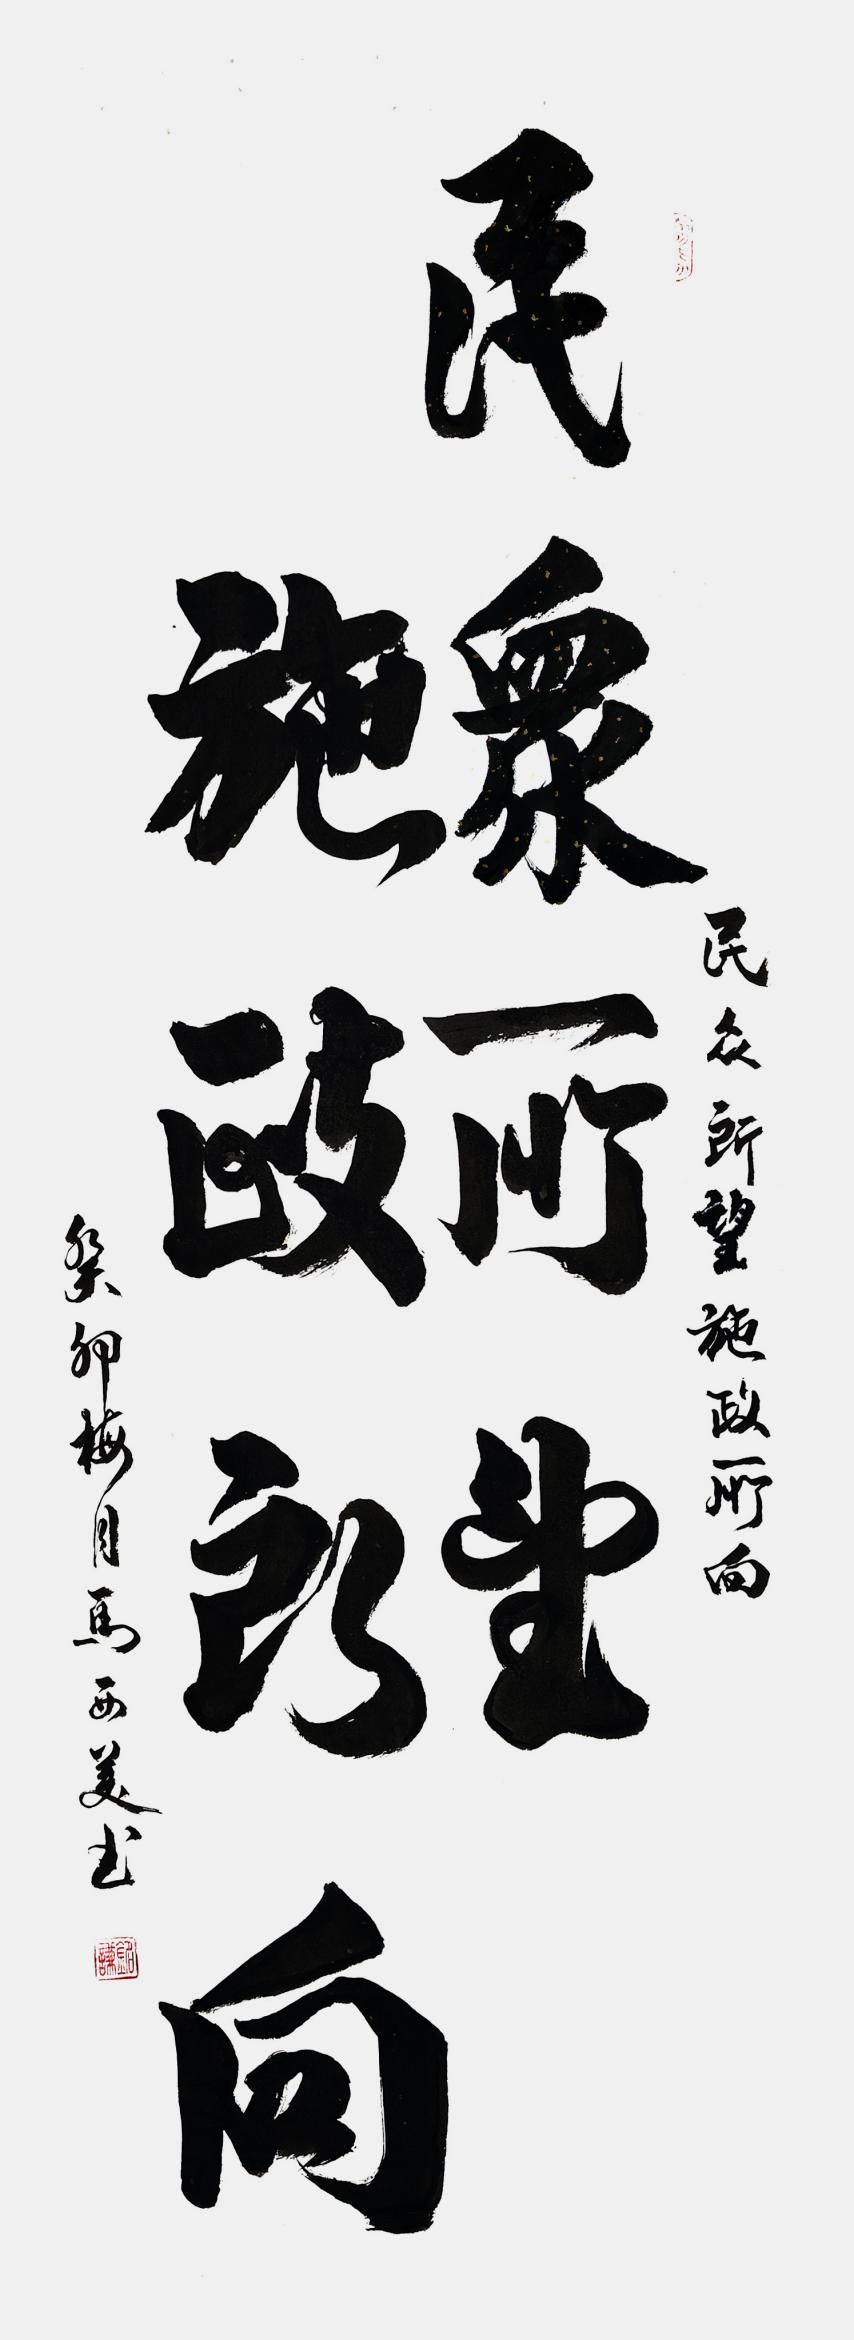 民衆所望
施政所向
民众所望施政所向
癸卯梅月馬西美书